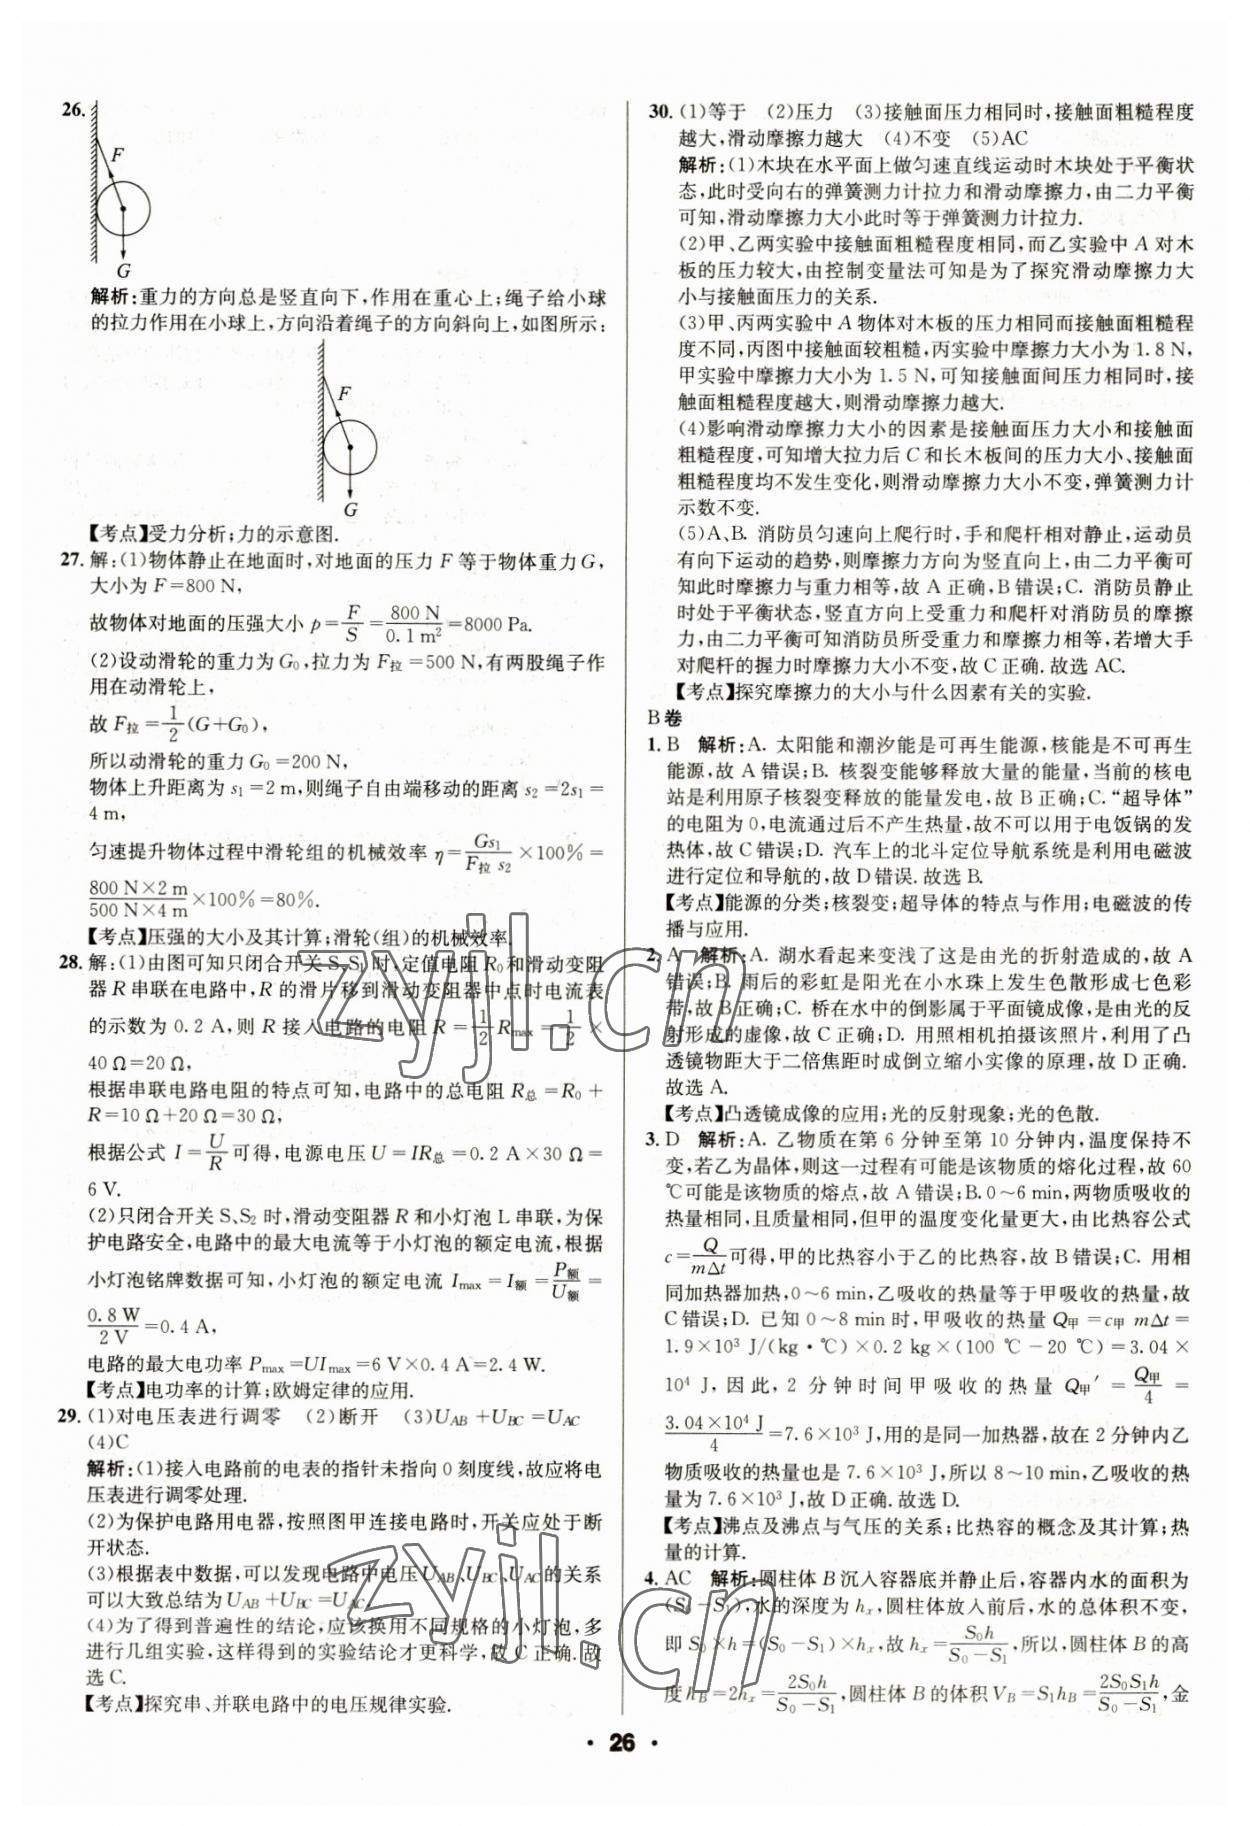 26.
F
G
解析:重力的方向总是竖直向下,作用在重心上;绳子给小球
的拉力作用在小球上,方向沿着绳子的方向斜向上,如图所示:
F
G
【考点】受力分析;力的示意图.
27. 解:(1)物体静止在地面时,对地面的压力 F 等于物体重力 G,
大小为 F=800 N,
故物体对地面的压强大小 p=F/S=800 N/0.1 m²=8000 Pa.
(2)设动滑轮的重力为 G₀,拉力为 F拉=500 N,有两股绳子作
用在动滑轮上,
故 F拉=1/2(G+G₀),
所以动滑轮的重力 G₀=200 N,
物体上升距离为 s₁=2 m,则绳子自由端移动的距离 s₂=2s₁=
4 m,
匀速提升物体过程中滑轮组的机械效率 η=Gs₁/F拉 s₂×100%=
800 N×2 m/500 N×4 m×100%=80%.
【考点】压强的大小及其计算;滑轮(组)的机械效率.
28. 解:(1)由图可知只闭合开关 S、S₁ 时,定值电阻 R₀ 和滑动变阻
器 R 串联在电路中,R 的滑片移到滑动变阻器中点时电流表
的示数为 0.2 A,则 R 接入电路的电阻 R=1/2 Rmax=1/2×
40 Ω=20 Ω,
根据串联电路电阻的特点可知,电路中的总电阻 R总=R₀+
R=10 Ω+20 Ω=30 Ω,
根据公式 I=U/R可得,电源电压 U=IR总=0.2 A×30 Ω=
6 V.
(2)只闭合开关 S、S₂ 时,滑动变阻器 R 和小灯泡 L 串联,为保
护电路安全,电路中的最大电流等于小灯泡的额定电流,根据
小灯泡铭牌数据可知,小灯泡的额定电流 Imax=I额=P额/U额=
0.8 W/2 V=0.4 A,
电路的最大电功率 Pmax=UImax=6 V×0.4 A=2.4 W.
【考点】电功率的计算;欧姆定律的应用.
29. (1)对电压表进行调零 (2)断开 (3)UAB+UBC=UAC
(4)C
解析:(1)接入电路前的电表的指针未指向 0 刻度线,故应将电
压表进行调零处理.
(2)为保护电路用电器,按照图甲连接电路时,开关应处于断
开状态.
(3)根据表中数据,可以发现电路中电压UAB、UBC、UAC的关系
可以大致总结为 UAB+UBC=UAC.
(4)为了得到普遍性的结论,应该换用不同规格的小灯泡,多
进行几组实验,这样得到的实验结论才更科学,故 C 正确.故
选 C.
【考点】探究串、并联电路中的电压规律实验.
30. (1)等于 (2)压力 (3)接触面压力相同时,接触面粗糙程度
越大,滑动摩擦力越大 (4)不变 (5)AC
解析:(1)木块在水平面上做匀速直线运动时木块处于平衡状
态,此时受向右的弹簧测力计拉力和滑动摩擦力,由二力平衡
可知,滑动摩擦力大小此时等于弹簧测力计拉力.
(2)甲、乙两实验中接触面粗糙程度相同,而乙实验中 A 对木
板的压力较大,由控制变量法可知是为了探究滑动摩擦力大
小与接触面压力的关系.
(3)甲、丙两实验中 A 物体对木板的压力相同而接触面粗糙程
度不同,丙图中接触面较粗糙,丙实验中摩擦力大小为 1.8 N,
甲实验中摩擦力大小为 1.5 N,可知接触面间压力相同时,接
触面粗糙程度越大,则滑动摩擦力越大.
(4)影响滑动摩擦力大小的因素是接触面压力大小和接触面
粗糙程度,可知增大拉力后 C 和长木板间的压力大小、接触面
粗糙程度均不发生变化,则滑动摩擦力大小不变,弹簧测力计
示数不变.
(5)A、B. 消防员匀速向上爬行时,手和爬杆相对静止,运动员
有向下运动的趋势,则摩擦力方向为竖直向上,由二力平衡可
可知此时摩擦力与重力相等,故 A 正确,B 错误;C. 消防员静止
时处于平衡状态,竖直方向上受重力和爬杆对消防员的摩擦
力,由二力平衡可知消防员所受重力和摩擦力相等,若增大手
对爬杆的握力时摩擦力大小不变,故 C 正确.故选 AC.
【考点】探究摩擦力的大小与什么因素有关的实验.
B 卷
1. B 解析:A. 太阳能和潮汐能是可再生能源,核能是不可再生
能源,故 A 错误;B. 核裂变能够释放大量的能量,当前的核电
站是利用原子核裂变释放的能量发电,故 B 正确;C.“超导体”
的电阻为 0,电流通过后不产生热量,故不可以用于电饭锅的发
热体,故 C 错误;D. 汽车上的北斗定位导航系统是利用电磁波
进行定位和导航的,故 D 错误.故选 B.
【考点】能源的分类;核裂变;超导体的特点与作用;电磁波的传
播与应用.
2. A 解析:A. 湖水看起来变浅了这是由光的折射造成的,故 A
错误;B. 雨后的彩虹是阳光在小水珠上发生色散形成七色彩
带,故 B 正确;C. 桥在水中的倒影属于平面镜成像,是由光的反
射形成的虚像,故 C 正确;D. 用照相机拍摄该照片,利用了凸
透镜物距大于二倍焦距时成倒立缩小实像的原理,故 D 正确.
故选 A.
【考点】凸透镜成像的应用;光的反射现象;光的色散.
3. D 解析:A. 乙物质在第 6 分钟至第 10 分钟内,温度保持不
变,若乙为晶体,则这一过程有可能是该物质的熔化过程,故 60
℃可能是该物质的熔点,故 A 错误;B.0~6 min,两物质吸收的
热量相同,且质量相同,但甲的温度变化量更大,由比热容公式
c=Q/mΔt可得,甲的比热容小于乙的比热容,故 B 错误;C. 用相
同加热器加热,0~6 min,乙吸收的热量等于甲吸收的热量,故
C 错误;D. 已知 0~8 min 时,甲吸收的热量 Q甲=c甲 mΔt=
1.9×10³ J/(kg·℃)×0.2 kg×(100 ℃-20 ℃)=3.04×
10⁴ J,因此,2 分钟时间甲吸收的热量 Q甲′=Q甲/4=
3.04×10⁴ J/4=7.6×10³ J,用的是同一加热器,故在 2 分钟内乙
物质吸收的热量也是 7.6×10³ J,所以 8~10 min,乙吸收的热
量为 7.6×10³ J,故 D 正确.故选 D.
【考点】沸点及沸点与气压的关系;比热容的概念及其计算;热
量的计算.
4. AC 解析:圆柱体 B 沉入容器底并静止后,容器内水的面积为
(S₀-S₁),水的深度为 hₓ,圆柱体放入前后,水的总体积不变,
即 S₀×h=(S₀-S₁)×hₓ,故 hₓ=S₀h/S₀-S₁,所以,圆柱体 B 的高
度 hB=2hₓ=2S₀h/S₀-S₁,圆柱体 B 的体积 VB=S₁hB=2S₀S₁h/S₀-S₁,金
· 26 ·
zyjl.cn
zyjl.cn